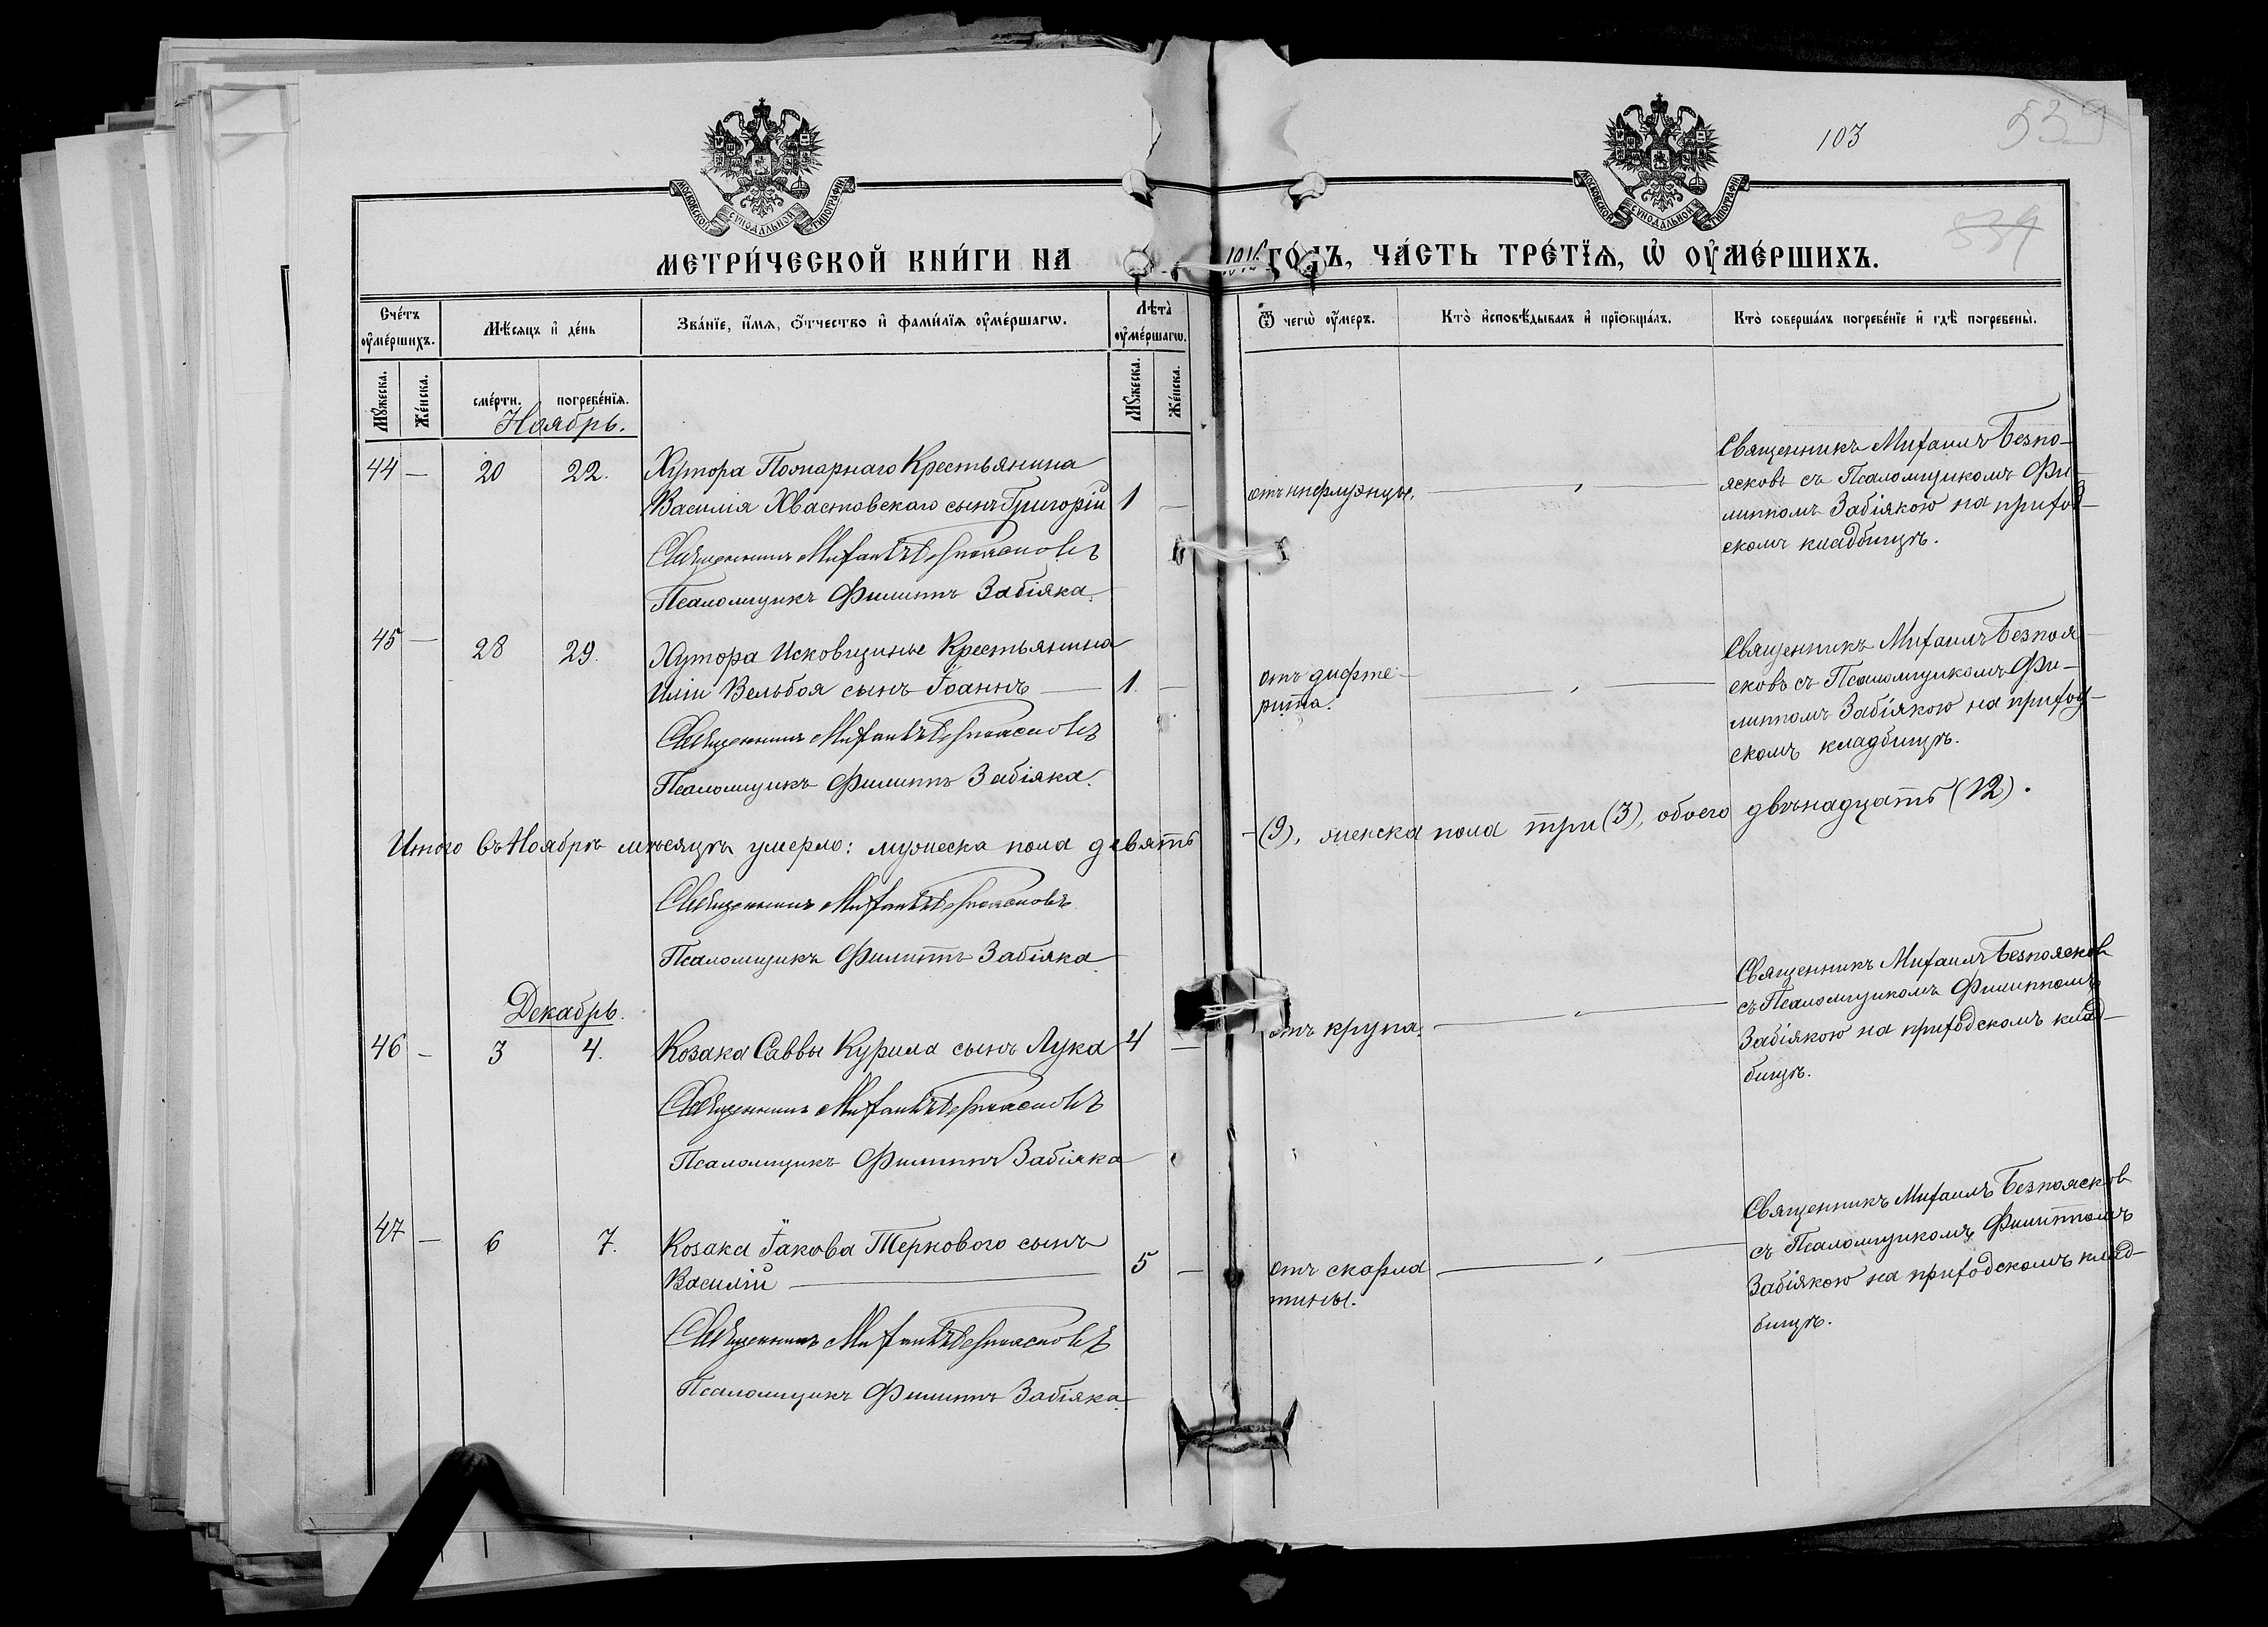 103
539
534
МОСКОВСКОЙ СѴНОДАЛЬНОЙ ТИПОГРАФІИ
МОСКОВСКОЙ СѴНОДАЛЬНОЙ ТИПОГРАФІИ
МЕТРИ́ЧЕСКОЙ КНИ́ГИ НА 1916 ГО́ДЪ, ЧА́СТЬ ТРЕ́ТЇѦ, Ѡ҆ ОУ҆МЕ́РШИХЪ.
Сче́тъ оу҆ме́ршихъ.
Мѣ́сѧцъ и҆ де́нь
Зва́нїе, и҆́мѧ, ѻ҆́тчество и҆ фами́лїѧ оу҆ме́ршагѡ.
Лѣ̑та̀ оу҆ме́ршагѡ.
Ѿ чегѡ̀ оу҆́меръ.
Кто̀ и҆сповѣ́дывалъ и҆ прїѡбща́лъ.
Кто̀ соверша́лъ погребе́нїе и҆ гдѣ̀ погребены̀.
Мꙋ́жеска.
Же́нска.
сме́рти.
погребе́нїѧ.
Мꙋ́жеска.
Же́нска.
Ноябрь.
44 — 20 22. Хутора Пожарнаго Крестьянина
Василія Хвастовскаго сынъ Григорій 1 —
Священникъ Михаилъ Безпоясковъ
Псаломщикъ Филиппъ Забіяка.
отъ инфлуэнцы.
Священникъ Михаилъ Безпо-
ясковъ съ Псаломщикомъ Фи-
липпомъ Забіякою на приход-
скомъ кладбищѣ.
45 — 28 29. Хутора Исковщинье Крестьянина
Иліи Вельбоя сынъ Іоаннъ — 1. —
Священникъ Михаилъ Безпоясковъ
Псаломщикъ Филиппъ Забіяка.
отъ дифте-
рита.
Священникъ Михаилъ Безпоя-
сковъ съ Псаломщикомъ Фи-
липпомъ Забіякою на приход-
скомъ кладбищѣ.
Итого въ Ноябрѣ мѣсяцѣ умерло: мужеска пола девять — (9), женска пола три (3), обоего двѣнадцать (12).
Священникъ Михаилъ Безпоясковъ
Псаломщикъ Филиппъ Забіяка
Декабрь.
46 — 3 4. Козака Саввы Курила сынъ Лука 4 —
Священникъ Михаилъ Безпоясковъ
Псаломщикъ Филиппъ Забіяка
отъ крупа.
Священникъ Михаилъ Безпоясковъ
съ Псаломщикомъ Филиппомъ
Забіякою на приходскомъ клад-
бищѣ.
47 — 6 7. Козака Іакова Теркового сынъ
Василій — 5 —
Священникъ Михаилъ Безпоясковъ
Псаломщикъ Филиппъ Забіяка.
отъ скарла
тины.
Священникъ Михаилъ Безпоясковъ
съ Псаломщикомъ Филиппомъ
Забіякою на приходскомъ клад-
бищѣ.